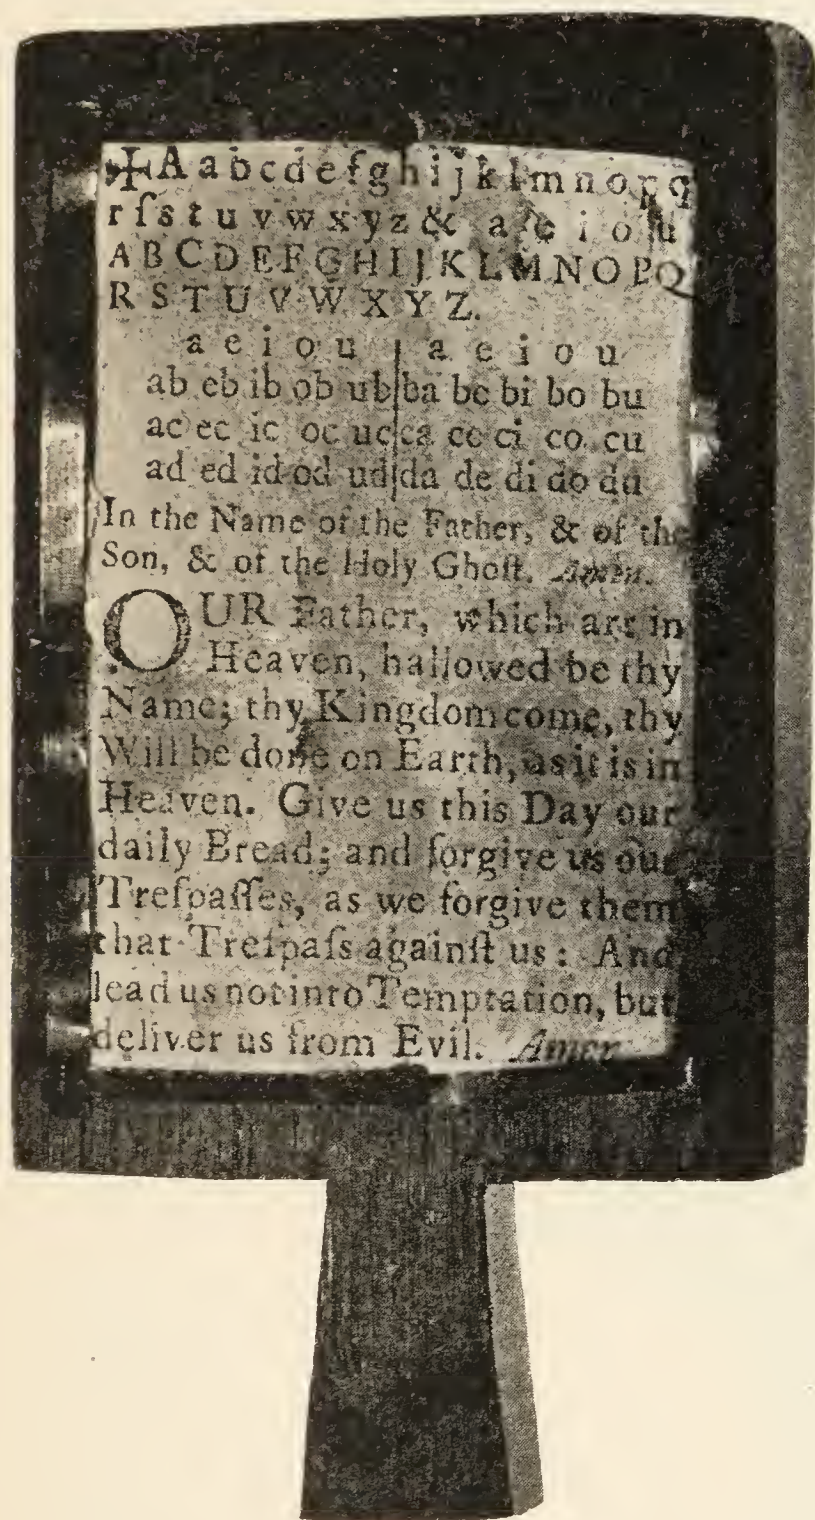 ✠Aabcdefghijklmnopq
rſstuvwxyz& aeiou
ABCDEFGHIJKLMNOPQ
RSTUVWXYZ.
a e i o u | a e i o u
ab eb ib ob ub | ba be bi bo bu
ac ec ic oc uc | ca ce ci co cu
ad ed id od ud | da de di do du
In the Name of the Father, & of the
Son, & of the Holy Ghoſt. Amen.
OUR Father, which art in
Heaven, hallowed be thy
Name; thy Kingdom come, thy
Will be done on Earth, as it is in
Heaven. Give us this Day our
daily Bread; and forgive us our
Treſpaſſes, as we forgive them
that Treſpaſs againſt us: And
lead us not into Temptation, but
deliver us from Evil. Amen